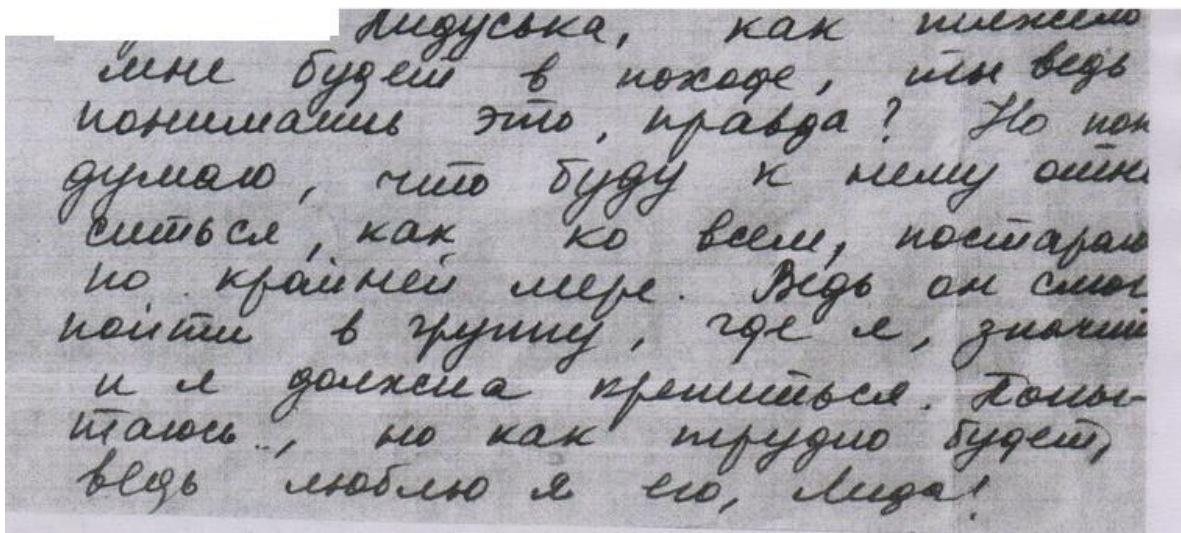 Лидуська, как тяжело
мне будет в походе, ты ведь
понимаешь это, правда? Но пок
думаю, что буду к нему отно
ситься, как ко всем, постараю
по крайней мере. Ведь он смог
пойти в группу, где я, значит
и я должна крепиться. Попы-
таюсь, но как трудно будет,
ведь люблю я его, Лида!